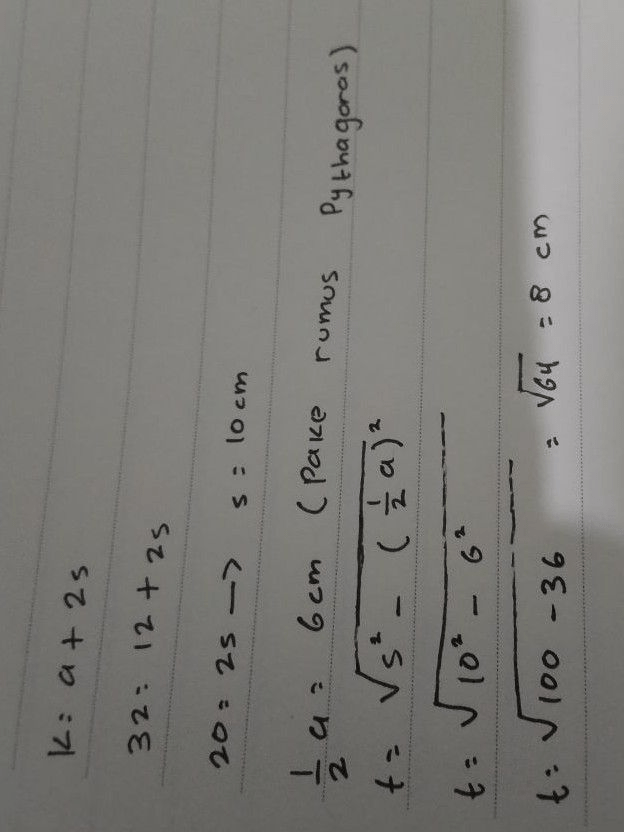 K = a + 2s
32 = 12 + 2s
20 = 2s –> s = 10 cm
½ a = 6 cm (Pake rumus Pythagoras)
t = √(s² – (½ a)²)
t = √(10² – 6²)
t = √(100 – 36) = √64 = 8 cm